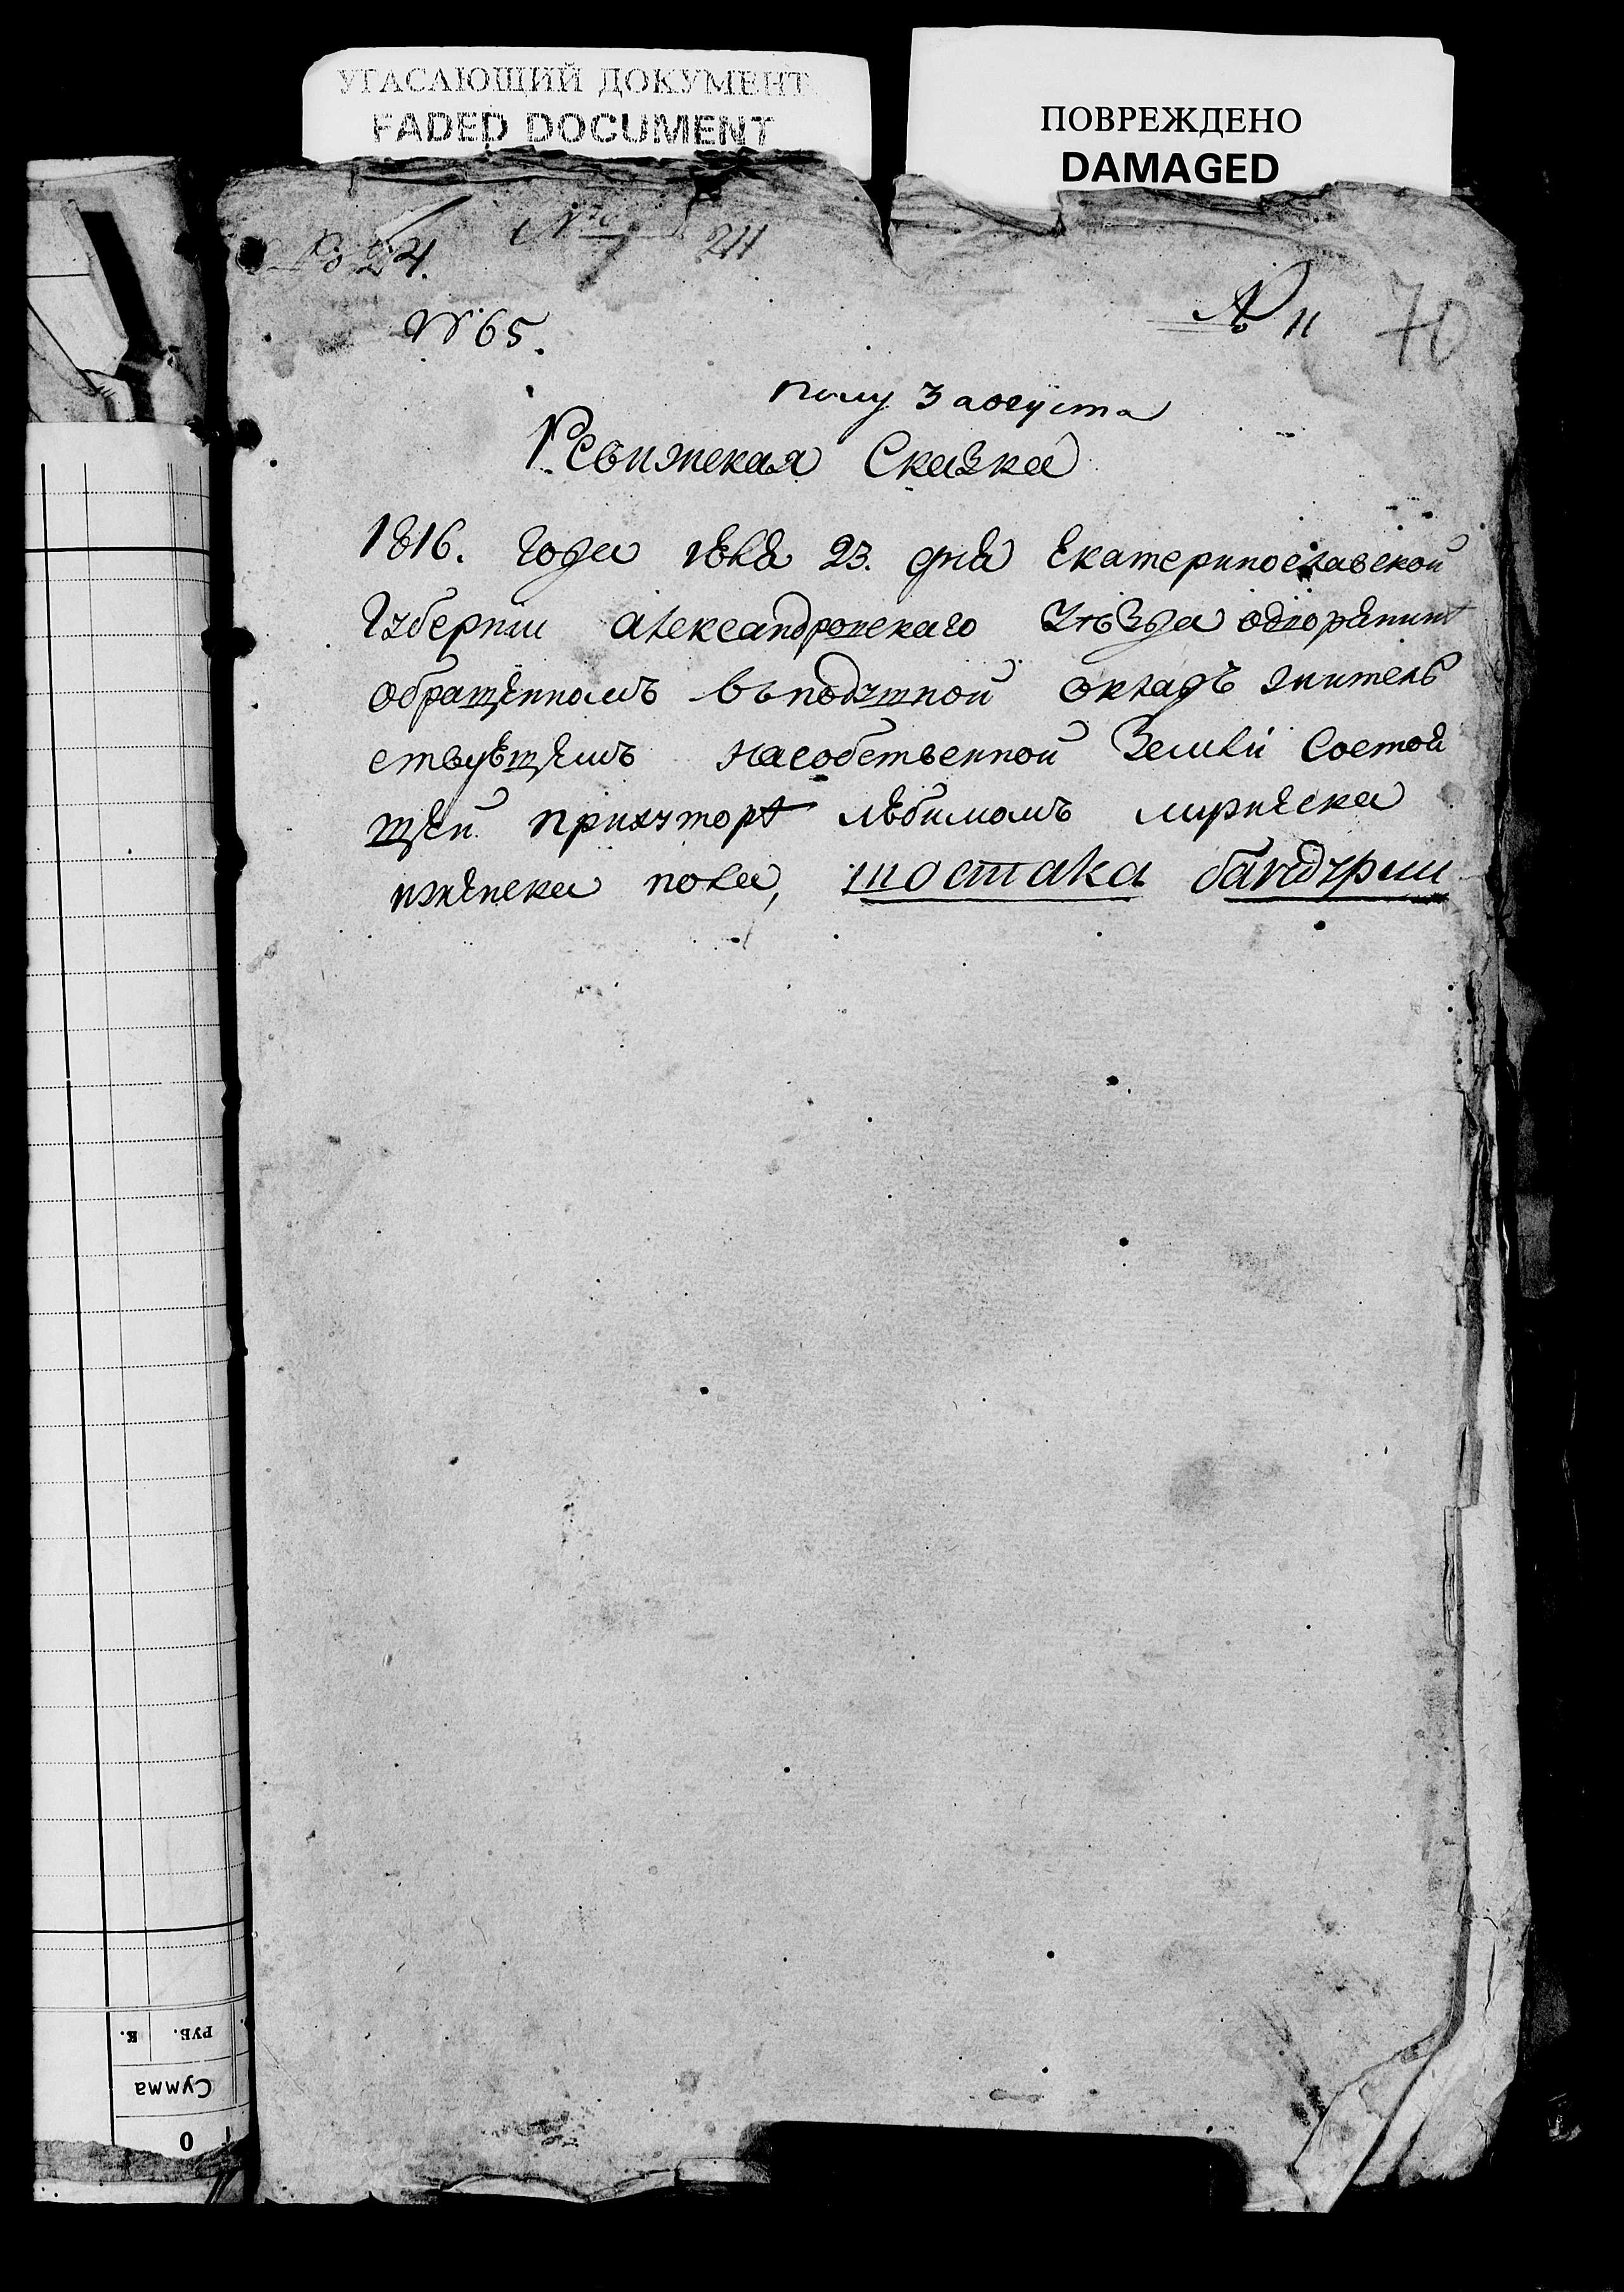 УГАСАЮЩИЙ ДОКУМЕНТ
FADED DOCUMENT
ПОВРЕЖДЕНО
DAMAGED
24. № 7 211
№ 65. № 11 70
полу 3 августа
Ревижская Сказка
1816. года июля 23. дня Екатеринославской
Губернии александровскаго уѣзда
обращеннымъ въ подушной окладъ жителъ
ствующемъ на собственной Земли Состоя
щей при хуторѣ любимомъ муржеска
иженска пола, шостака бандури
РУБ. К.
Сумма